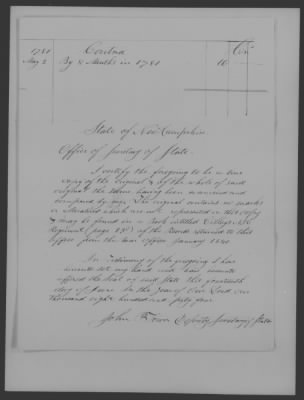 1781 Contra Cr
May 2 By 8 Months in 1781 16
State of New Hampshire
Office of Secretary of State
I certify the foregoing to be a true
copy of the original & of the whole of said
original the same having been examined and
compared by me. The original contains no marks
or which are not represented in this copy
may be found in a book entitled
Regiment (page 18) of the Records returned to this
office from the War office January 18
In Testimony of the foregoing I have
hereunto set my hand and have hereunto
affixed the seal of said State this fourteenth
day of June in the year of Our Lord one
thousand eight hundred and fifty four
John Deputy Secretary State